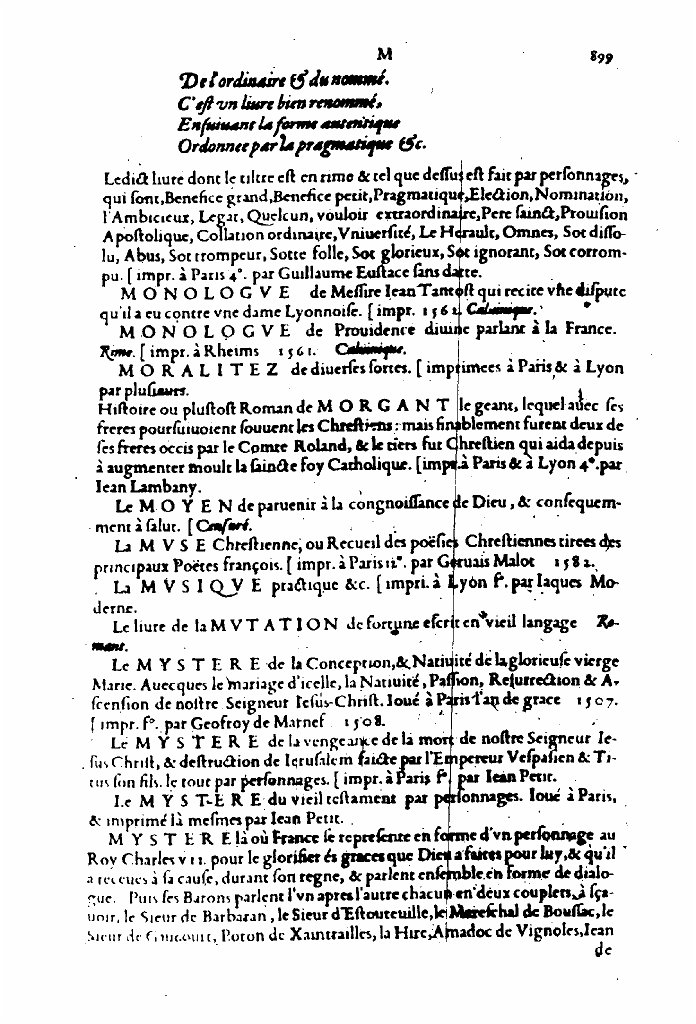 M 899
De l'ordinaire & du nommé.
C'est vn liure bien renommé,
Ensuiuant la forme autentique
Ordonnee par la pragmatique &c.
Ledict liure dont le tiltre est en rime & tel que dessus est fait par personnages,
qui sont, Benefice grand, Benefice petit, Pragmatique, Election, Nomination,
l'Ambicieux, Legat, Quelcun, vouloir extraordinaire, Pere sainct, Prouision
Apostolique, Collation ordinaire, Vniuersité, Le Herault, Omnes, Sot disso-
lu, Abus, Sot trompeur, Sotte folle, Sot glorieux, Sot ignorant, Sot corrom-
pu. [impr. à Paris 4°. par Guillaume Eustace sans datte.
MONOLOGVE de Messire Iean Tantost qui recite vne dispute
qu'il a eu contre vne dame Lyonnoise. [impr. 1562 Caluinique.
MONOLOGVE de Prouidence diuine parlant à la France.
Rime. [impr. à Rheims 1561. Caluinique.
MORALITEZ de diuerses sortes. [imprimees à Paris & à Lyon
par plusieurs.
Histoire ou plustost Roman de MORGANT le geant, lequel auec ses
freres poursuiuoient souuent les Chrestiens: mais finablement furent deux de
ses freres occis par le Comte Roland, & le tiers fut Chrestien qui aida depuis
à augmenter moult la saincte foy Catholique. [impr. à Paris & à Lyon 4°. par
Iean Lambany.
Le MOYEN de paruenir à la congnoissance de Dieu, & consequem-
ment à salut. [Censuré.
La MVSE Chrestienne, ou Recueil des poësies Chrestiennes tirees des
principaux Poëtes françois. [impr. à Paris 12°. par Geruais Malot 1582.
La MVSIQVE practique &c. [impri. à Lyon f°. par Iaques Mo-
derne.
Le liure de la MVTATION de fortune escrit en vieil langage Ro-
mant.
Le MYSTERE de la Conception, & Natiuité de la glorieuse vierge
Marie. Auecques le mariage d'icelle, la Natiuité, Passion, Resurrection & A-
scension de nostre Seigneur Iesus-Christ. Ioué à Paris l'an de grace 1507.
[impr. f°. par Geofroy de Marnef 1508.
Le MYSTERE de la vengeance de la mort de nostre Seigneur Ie-
sus Christ, & destruction de Ierusalem faicte par l'Empereur Vespasien & Ti-
tus son fils. le tout par personnages. [impr. à Paris f°. par Iean Petit.
Le MYSTERE du vieil testament par personnages. Ioué à Paris,
& imprimé là mesmes par Iean Petit.
MYSTERE là où France se represente en forme d'vn personnage au
Roy Charles VII. pour le glorifier és graces que Dieu a faites pour luy, & qu'il
a receues à sa cause, durant son regne, & parlent ensemble en forme de dialo-
gue. Puis ses Barons parlent l'vn apres l'autre chacun en deux couplets, à sça-
uoir, le Sieur de Barbaran, le Sieur d'Estouteuille, le Mareschal de Boussac, le
Sieur de Gaucourt, Poton de Xaintrailles, la Hire, Amadoc de Vignoles, Iean
de